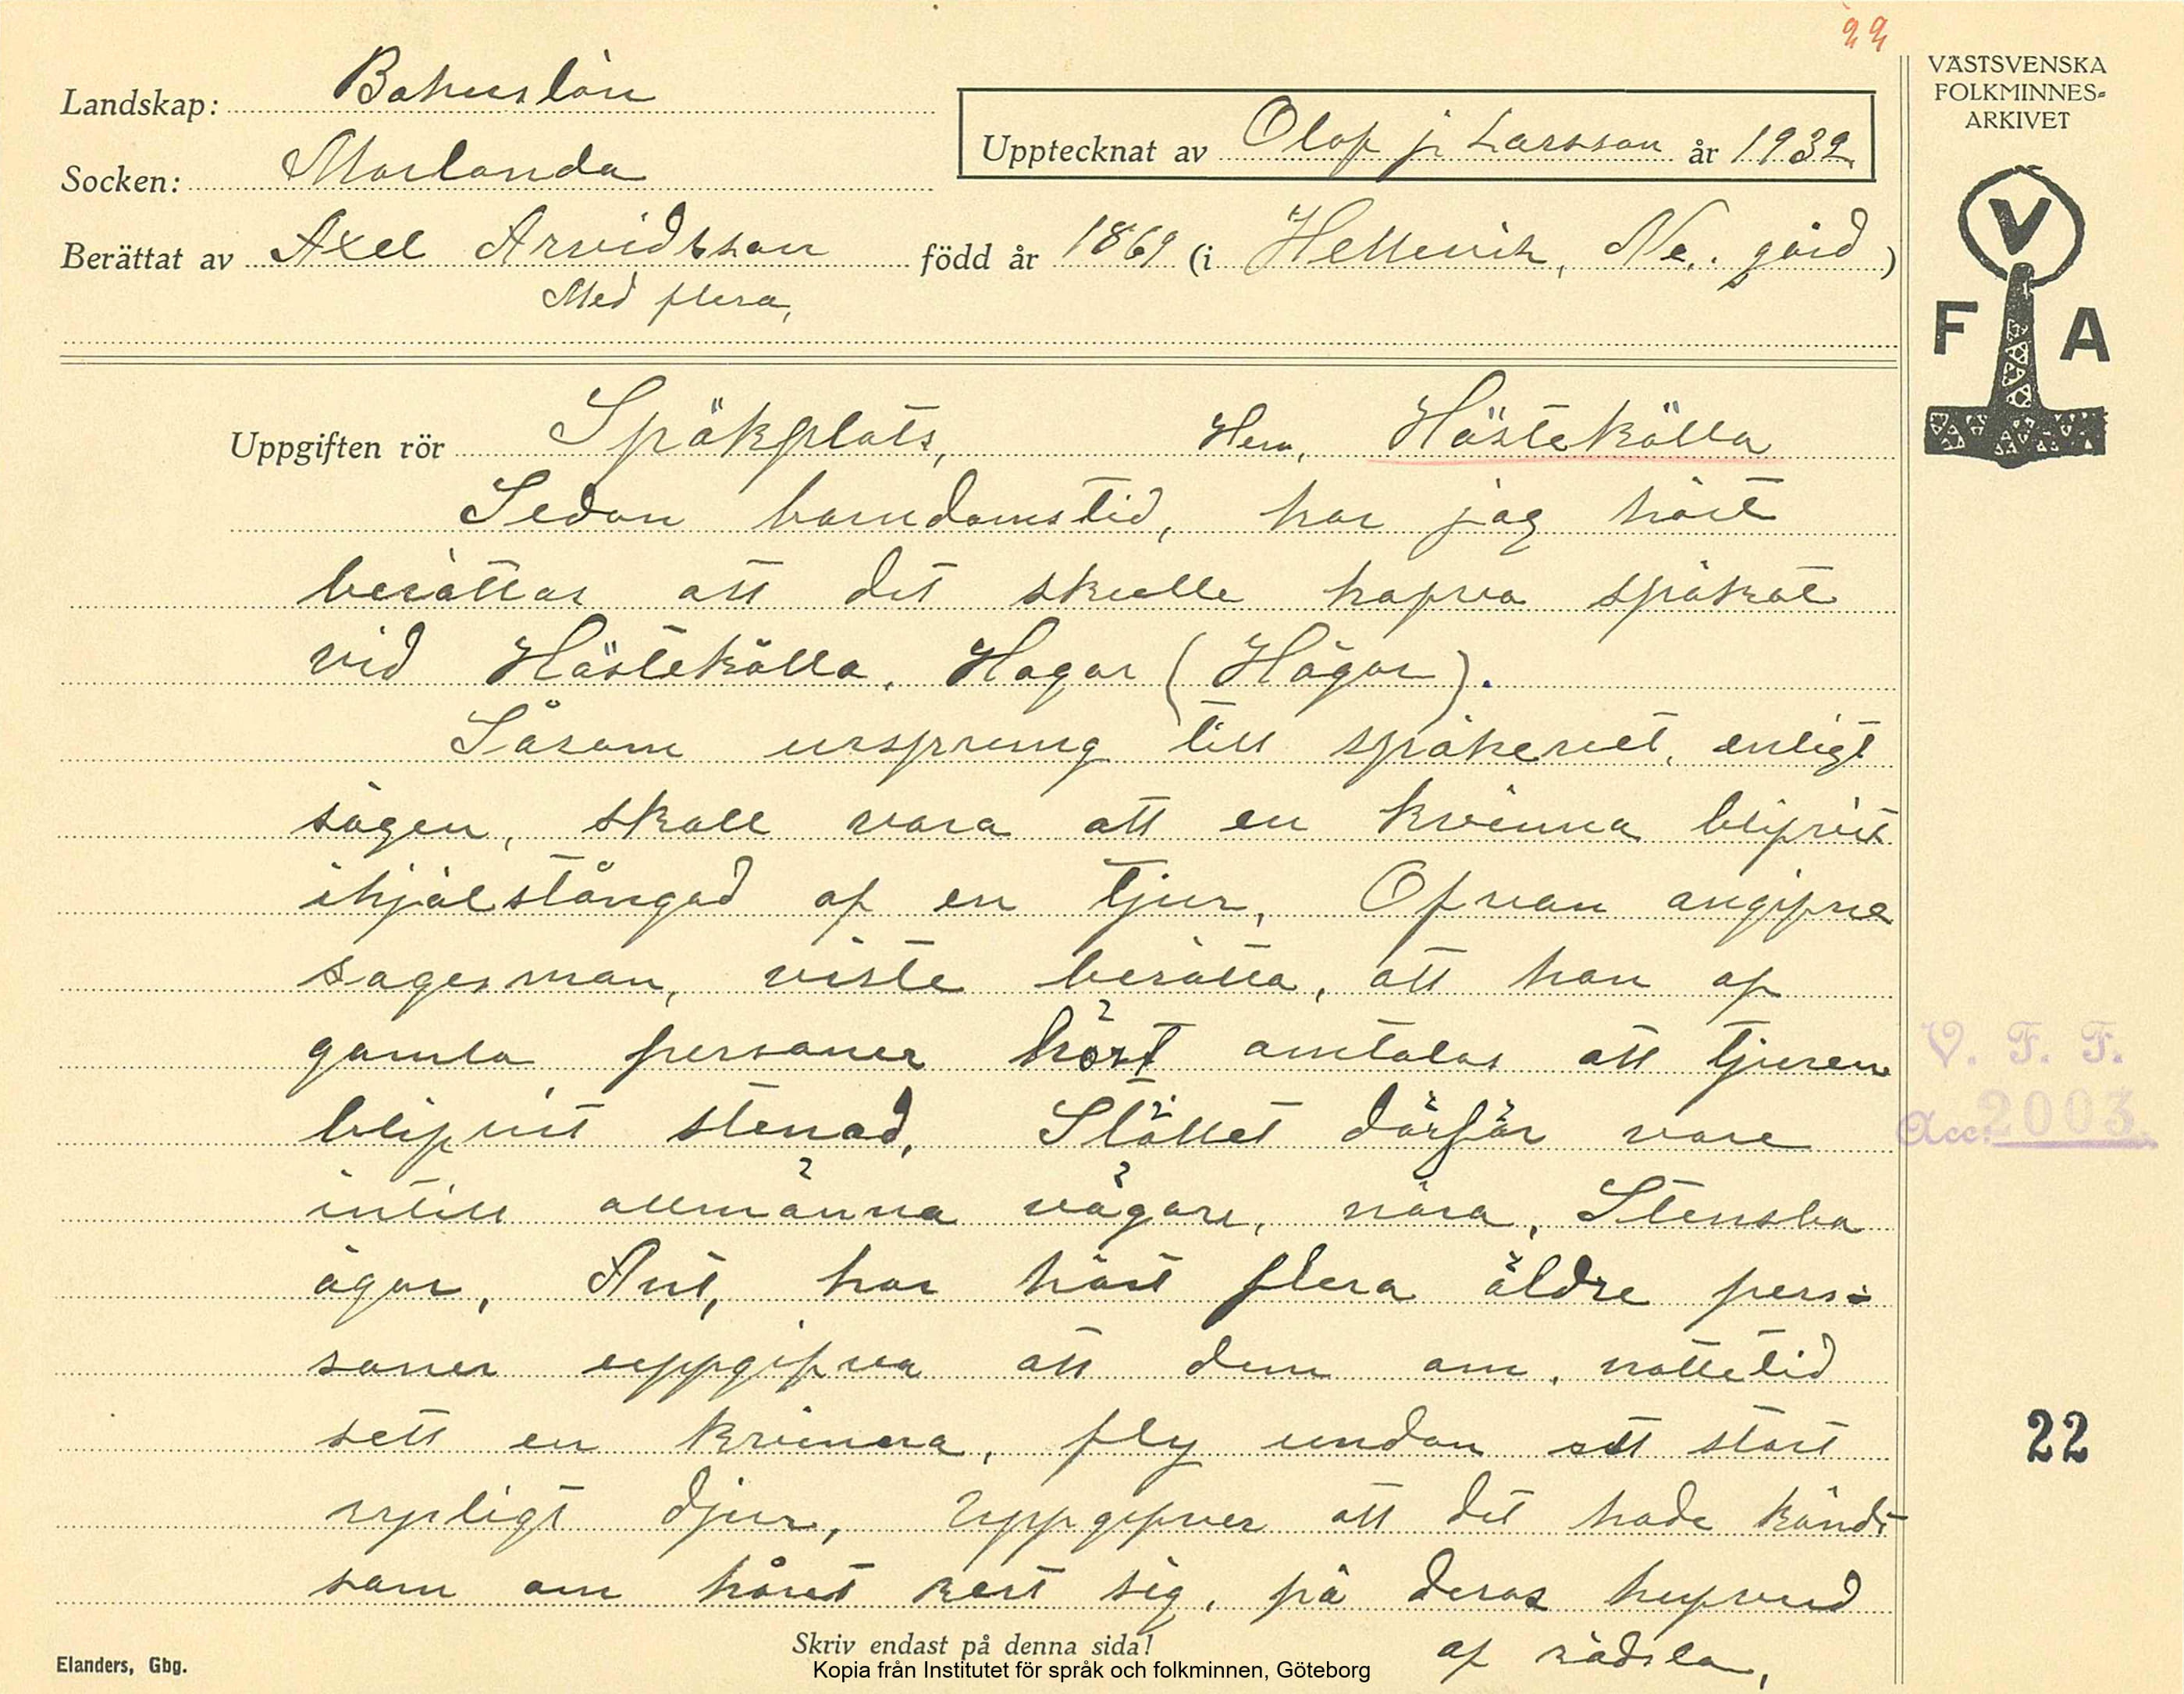 22
Landskap: Bohuslän
Socken: Morlanda
Upptecknat av Olof j. Larsson år 1932.
VÄSTSVENSKA
FOLKMINNES-
ARKIVET
V
F A
Berättat av Axel Arvidsson född år 1869 (i Hellevik, Ne.. gård)
Med flera,
Uppgiften rör Spökplats, Hem, Hästekälla
Sedan barndomstid, har jag hört
berättas att det skulle hafva spökat
vid Hästekälla. Hagar (Högar).
Såsom ursprung till spökeriet, enligt
sägen, skall vara att en kvinna blifvit
ihjälstångad af en tjur, Ofvan angifne
sagesman, viste berätta, att han af
gamla personer hört omtalas att tjuren
blifvit stenad, Stället därför vore
intill allmänna vägare, nära, Stensba
ägor, Avt, har hört flera äldre pers=
soner uppgifva att dem om, nattetid
sett en kvinna, fly undan ett stort
rysligt djur, Uppgifver att det hade kändt
som om håret rest sig, på deras hufvud
af rädsla,
V. F. F.
Acc. 2003.
22
Skriv endast på denna sida!
Elanders, Gbg.
Kopia från Institutet för språk och folkminnen, Göteborg